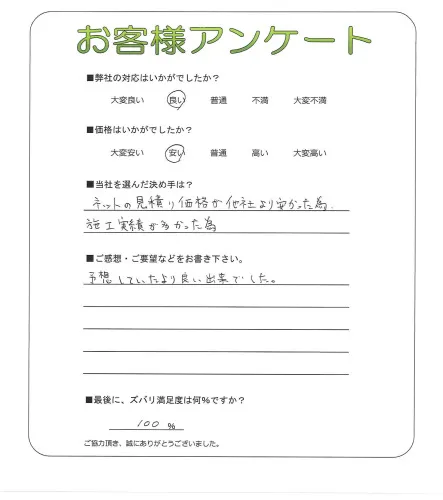 お客様アンケート
■弊社の対応はいかがでしたか？
大変良い 良い 普通 不満 大変不満
■価格はいかがでしたか？
大変安い 安い 普通 高い 大変高い
■当社を選んだ決め手は？
ネットの見積り価格が他社より安かった為．
施工実績が多かった為
■ご感想・ご要望などをお書き下さい。
予想していたより良い出来でした。
■最後に、ズバリ満足度は何％ですか？
100 %
ご協力頂き、誠にありがとうございました。